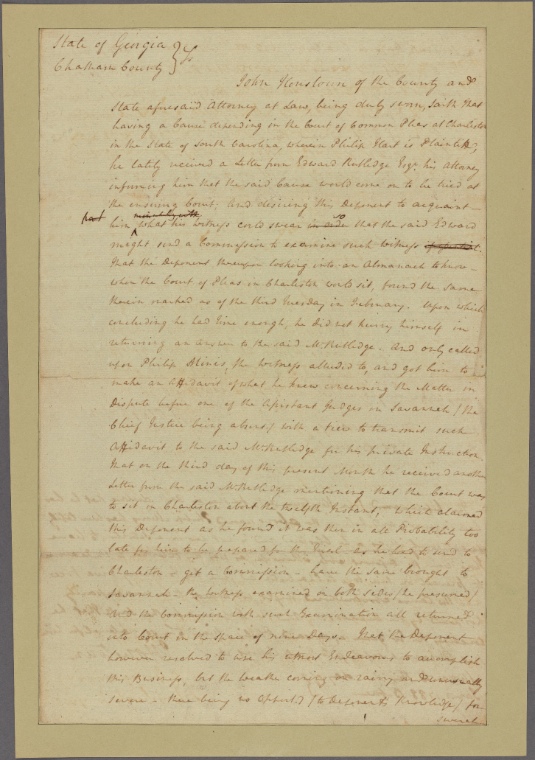 State of Georgia } ss
Chatham County }
John Houstoun of the County and
State aforesaid Attorney at Law, being duly sworn, saith that
having a Cause depending in the Court of Common Pleas at Charleston
in the State of South Carolina, wherein Philip Hart is Plaintiff,
he lately received a Letter from Edward Rutledge Esqr. his Attorney
informing him that the said Cause would come on to be tried at
the ensuing Court, and desiring this Deponent to acquaint
him what his Witness could swear so that the said Edward
might send a Commission to examine such Witness
That the Deponent thereupon looking into an Almanack to know
when the Court of Pleas in Charleston would sit, found the same
therein marked as of the third Tuesday in February. Upon which
concluding he had time enough, he did not hurry himself in
returning an answer to the said Mr. Rutledge. And only called
upon Philip Minis, the Witness alluded to, and got him to
make an Affidavit of what he knew concerning the Matter in
Dispute before one of the Assistant Judges in Savannah (the
Chief Justice being absent) with a view to transmit such
Affidavit to the said Mr. Rutledge for his private Instruction
that on the third day of this present Month he received another
Letter from the said Mr. Rutledge mentioning that the Court was
to sit in Charleston about the twelfth Instant, which alarmed
this Deponent as he found it was then in all Probability too
late for him to be prepared for the Trial as he had to send to
Charleston - get a Commission - have the same brought to
Savannah - the Witness examined on both sides (he presumed)
and the Commission with such Examination all returned
into Court in the space of nine Days. That the Deponent
however resolved to use his utmost Endeavours to accomplish
this Business, but the weather coming on rainy and unusually
severe - there being no Opportu'y (to Deponents Knowledge) for